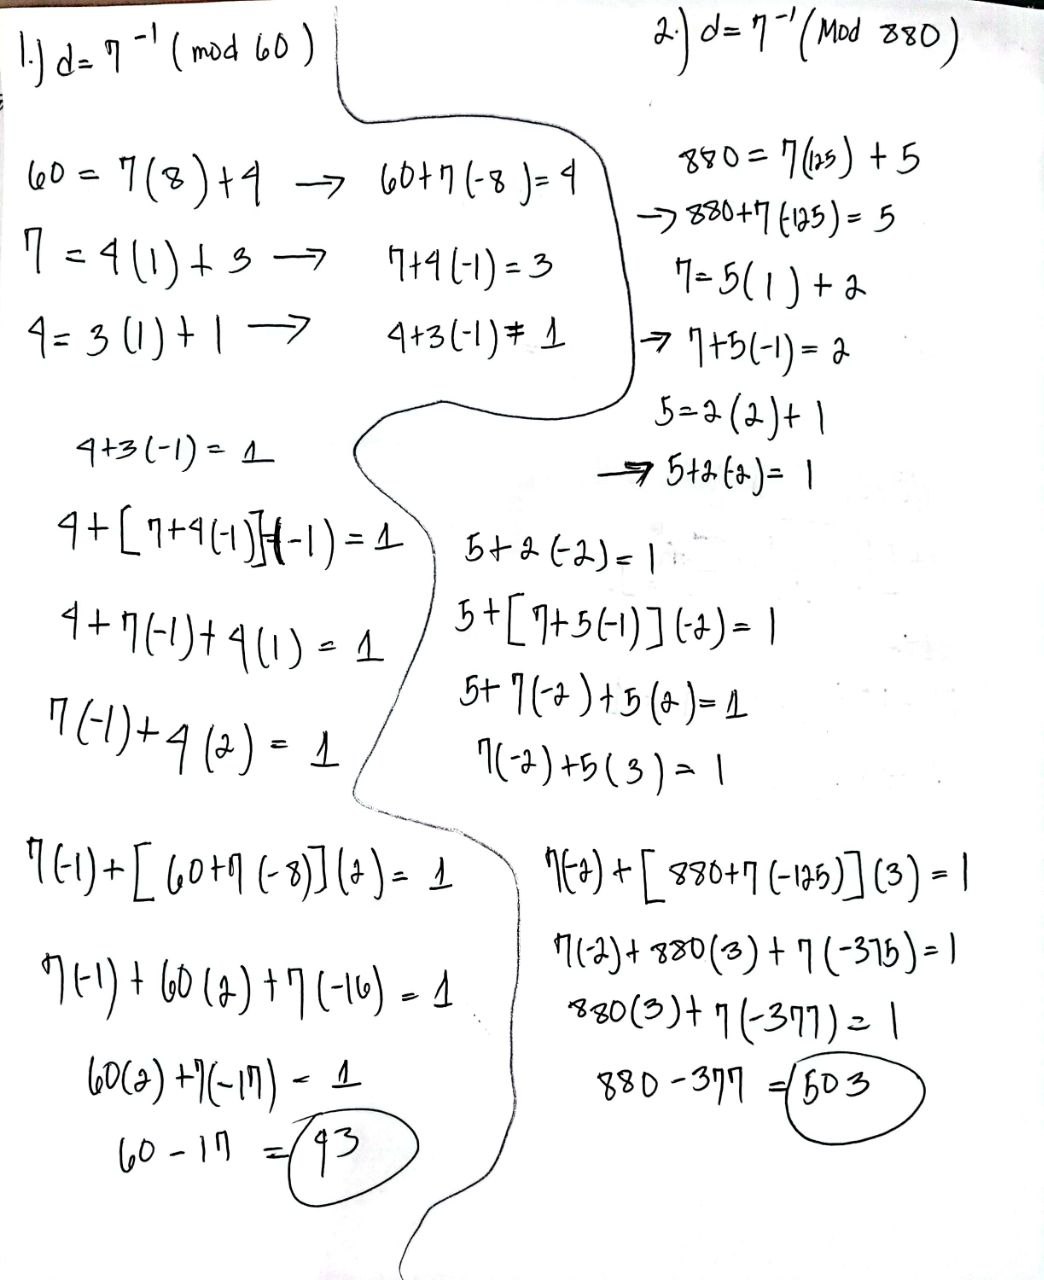 1.) d = 7⁻¹ (mod 60)
60 = 7(8)+4 → 60+7(-8)=4
7 = 4(1)+3 → 7+4(-1)=3
4= 3(1)+1 → 4+3(-1)=1
4+3(-1) = 1
4+[7+4(-1)](-1) = 1
4+7(-1)+4(1) = 1
7(-1)+4(2) = 1
7(-1)+[60+7(-8)](2) = 1
7(-1)+60(2)+7(-16) = 1
60(2)+7(-17) = 1
60-17 = 43
2.) d=7⁻¹ (Mod 880)
880=7(125)+5
→ 880+7(-125)=5
7=5(1)+2
→ 7+5(-1)=2
5=2(2)+1
→ 5+2(-2)=1
5+2(-2)=1
5+[7+5(-1)](-2)=1
5+7(-2)+5(2)=1
7(-2)+5(3)=1
7(-2)+[880+7(-125)](3)=1
7(-2)+880(3)+7(-375)=1
880(3)+7(-377)=1
880-377=503